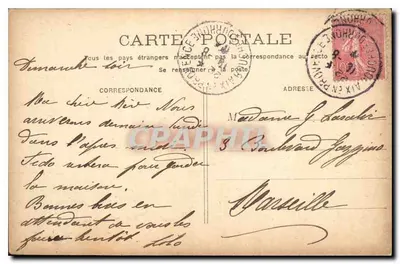 CARTE POSTALE
Tous les pays étrangers n'acceptent pas la correspondance au verso
Se renseigner à la
CORRESPONDANCE
ADRESSE
Dimanche soir
Ma chère Nous
arriverons demain lundi
dans l'après midi
pour garder
la maison.
Bonnes bises en
attendant de vous les
faire bientôt. Lolo
Madame G.
3 Boulevard
Marseille
AIX EN PROVENCE